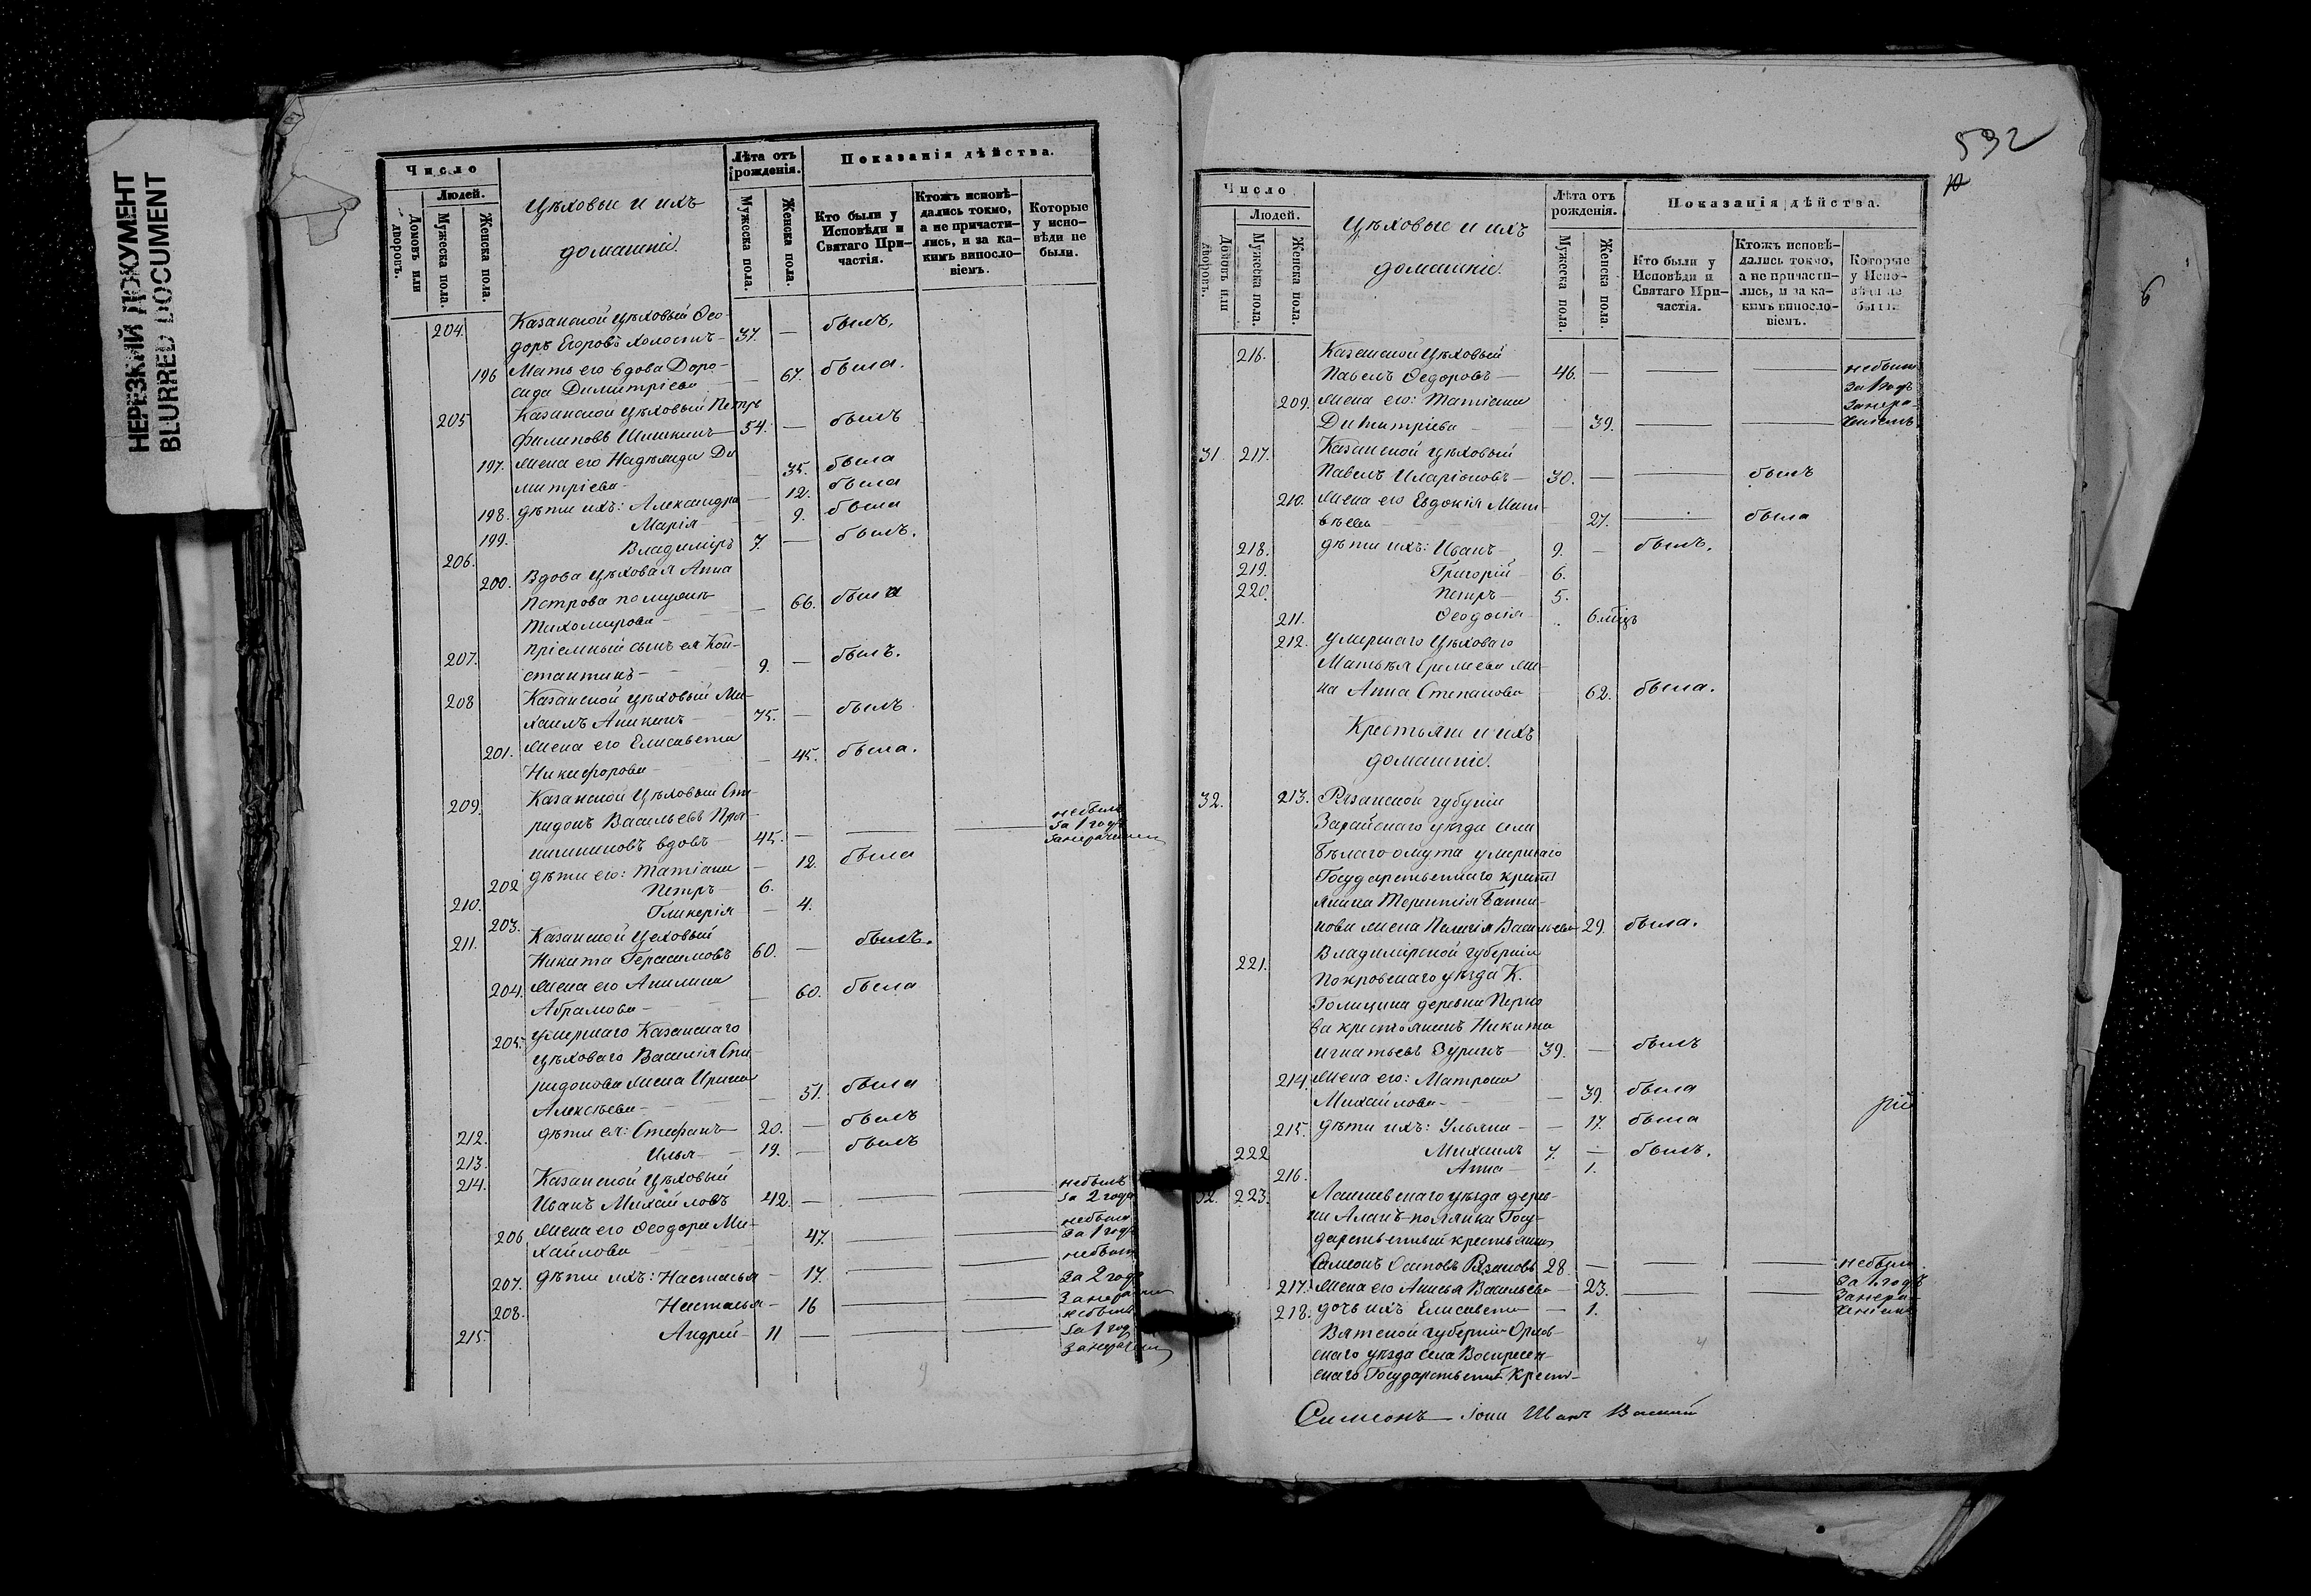 НЕРЕЗКИЙ ДОКУМЕНТ
BLURRED DOCUMENT
Число
Людей.
Домовъ или дворовъ.
Мужеска пола.
Женска пола.
Цѣховые и ихъ
домашніе.
Лѣта отъ рожденія.
Мужеска пола.
Женска пола.
Показанія дѣйства.
Кто были у Исповѣди и Святаго Причастія.
Ктожъ исповѣдались токмо, а не причастились, и за какимъ винословіемъ.
Которые у исповѣди не были.
204. Казанской цѣховый Ѳео-
доръ Егоровъ холостъ 37. — былъ.
196 Мать его вдова Доро-
Димитріева — 67. была.
205 Казанской цѣховый Петръ
Филиповъ Шишкинъ 54. — былъ
197. Жена его Надежда Ди
митріева — 35. была
198. дѣти ихъ: Александра — 12. была
199. Марія — 9. была
206. Владиміръ 7. — былъ.
200. Вдова цѣховая Анна
Петрова по мужѣ
Тихомирова — 66. была
207. Пріемный сынъ ея Кон-
стантинъ — 9. — былъ.
208 Казанской цѣховый Ми-
хаилъ Аникинъ 75. — былъ
201. Жена его Елисавета
Никифорова — 45. была.
209. Казанской Цѣховый Спи-
ридонъ Васильевъ
вдовъ 45. — небылъ за 1 годъ
202 дѣти его: Татіана — 12. была
210. Петръ 6.
203. Гликерія — 4.
211. Казанской Цеховый
Никита Герасимовъ 60. — былъ.
204. Жена его Акилина
Абрамова — 60. была
205. умершаго Казанскаго
цѣховаго Василія Спи-
ридонова жена Ирина
Алексѣева — 51. была
212. дѣти ея: Стефанъ 20. — былъ
213. Илья 19. — былъ
214. Казанской Цѣховый
Иванъ Михайловъ 42. — небылъ за 2 года
206 Жена его Ѳеодора Ми-
хайлова 47. небыла за 1 годъ
207. дѣти ихъ: Настасья — 17. небыла за 2 года
208. Настасья — 16
215. Андрей 11 — небылъ за 1 годъ
532
Число
Людей.
Домовъ или дворовъ.
Мужеска пола.
Женска пола.
Цѣховые и ихъ
домашніе.
Лѣта отъ рожденія.
Мужеска пола.
Женска пола.
Показанія дѣйства.
Кто были у Исповѣди и Святаго Причастія.
Ктожъ исповѣдались токмо, а не причастились, и за какимъ винословіемъ.
Которые у Исповѣди не были.
216. Казанской Цѣховый
Павелъ Ѳедоровъ 46. — небыли
за 1 годъ
209. Жена его: Татіана
Димитріева — 39. занера-
31. 217. Казанской цѣховый
Павелъ Иларіоновъ 30. — былъ
210. Жена его Евдокія Мат-
вѣева 27. была
218. дѣти ихъ: Иванъ 9. — былъ.
219. Григорій 6.
220. Петръ 5.
211. Ѳеодосія 6 мѣцъ
212. умершаго Цѣховаго
Матвѣя же-
на Анна Степанова 62. была.
Крестьяне и ихъ
домашніе.
32. 213. Рязанской губерніи
Зарайскаго уѣзда села
Бѣлаго омута умершаго
Государственнаго крест
янина Терентія
жена Пелагія Васильева 29. была.
221. Владимірской губерніи
Покровскаго уѣзда К.
Голицина деревни
крестьянинъ Никита
Игнатьевъ Зуринъ 39. — былъ
214. Жена его: Матрона
Михайлова — 39. была
215. дѣти ихъ: Ульяна — 17. была
222 Михаилъ 7. — былъ.
216. Анна — 1.
32. 223. Лаишевскаго уѣзда дерев-
ни Аланъ-полянки Госу-
дарственный крестьянинъ
Симеонъ Осиповъ Рязановъ 28. — небыли
217. Жена его Анисья Васильева 23. за 1 годъ
218. дочь ихъ Елисавета — 1.
Вятской губерніи Орлов-
скаго уѣзда села Воскресен-
скаго Государствен. Крест-
Симеонъ Іона Иванъ Василій
6